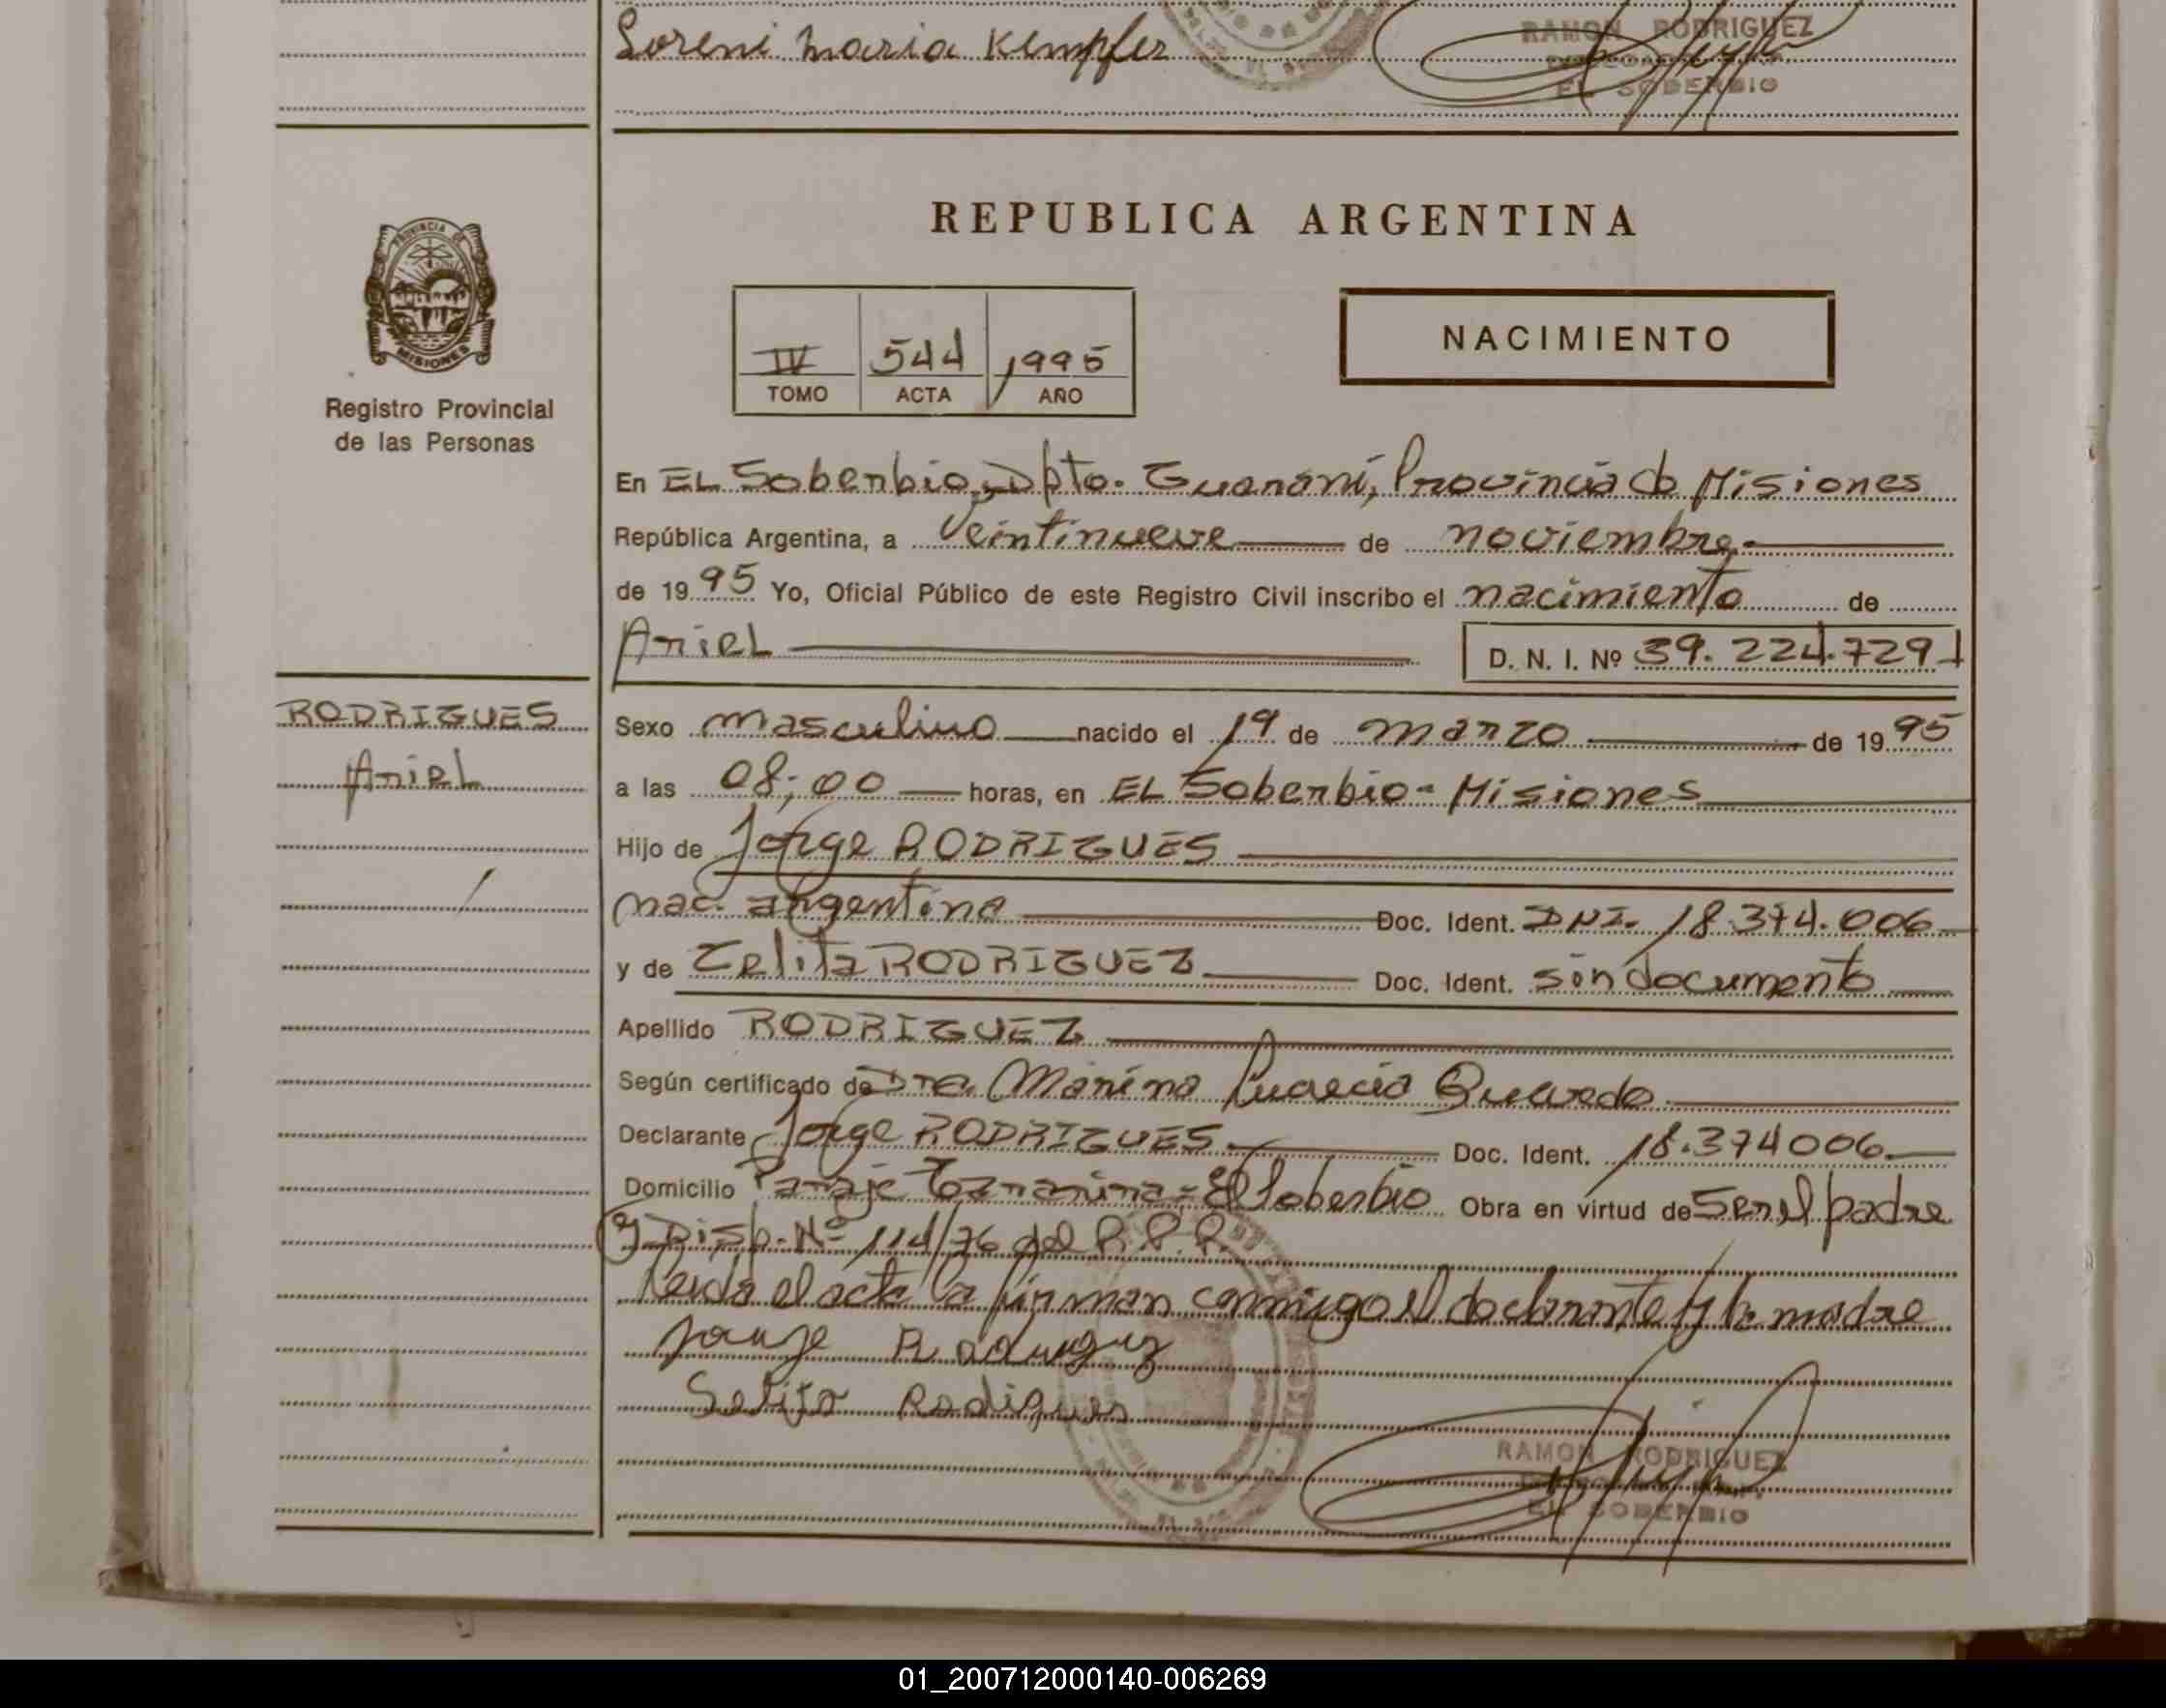 Loreni Maria Kempfer
RAMON RODRIGUEZ
EL SOBERBIO
PROVINCIA DE
MISIONES
Registro Provincial
de las Personas
REPUBLICA ARGENTINA
IV 544 1995
TOMO ACTA AÑO
NACIMIENTO
En EL Soberbio, Dpto. Guaraní, Provincia de Misiones
República Argentina, a Veintinueve de noviembre.
de 1995 Yo, Oficial Público de este Registro Civil inscribo el nacimiento de
Ariel D. N. I. Nº 39.224.729
RODRIGUES
Ariel
Sexo masculino nacido el 19 de marzo de 1995
a las 08;00 horas, en EL Soberbio - Misiones
Hijo de Jorge RODRIGUES
nac. argentina Doc. Ident. DNI. 18.374.006
y de Zelita RODRIGUEZ Doc. Ident. sin documento
Apellido RODRIGUEZ
Según certificado de Dra. Marina Quevedo
Declarante Jorge RODRIGUES Doc. Ident. 18.374006
Domicilio Paraje - El Soberbio Obra en virtud de Ser el padre
y Disp. Nº 114/76 del R.P.P.
Leida el acta la firman conmigo el declarante y la madre
RAMON RODRIGUEZ
EL SOBERBIO
01_200712000140-006269